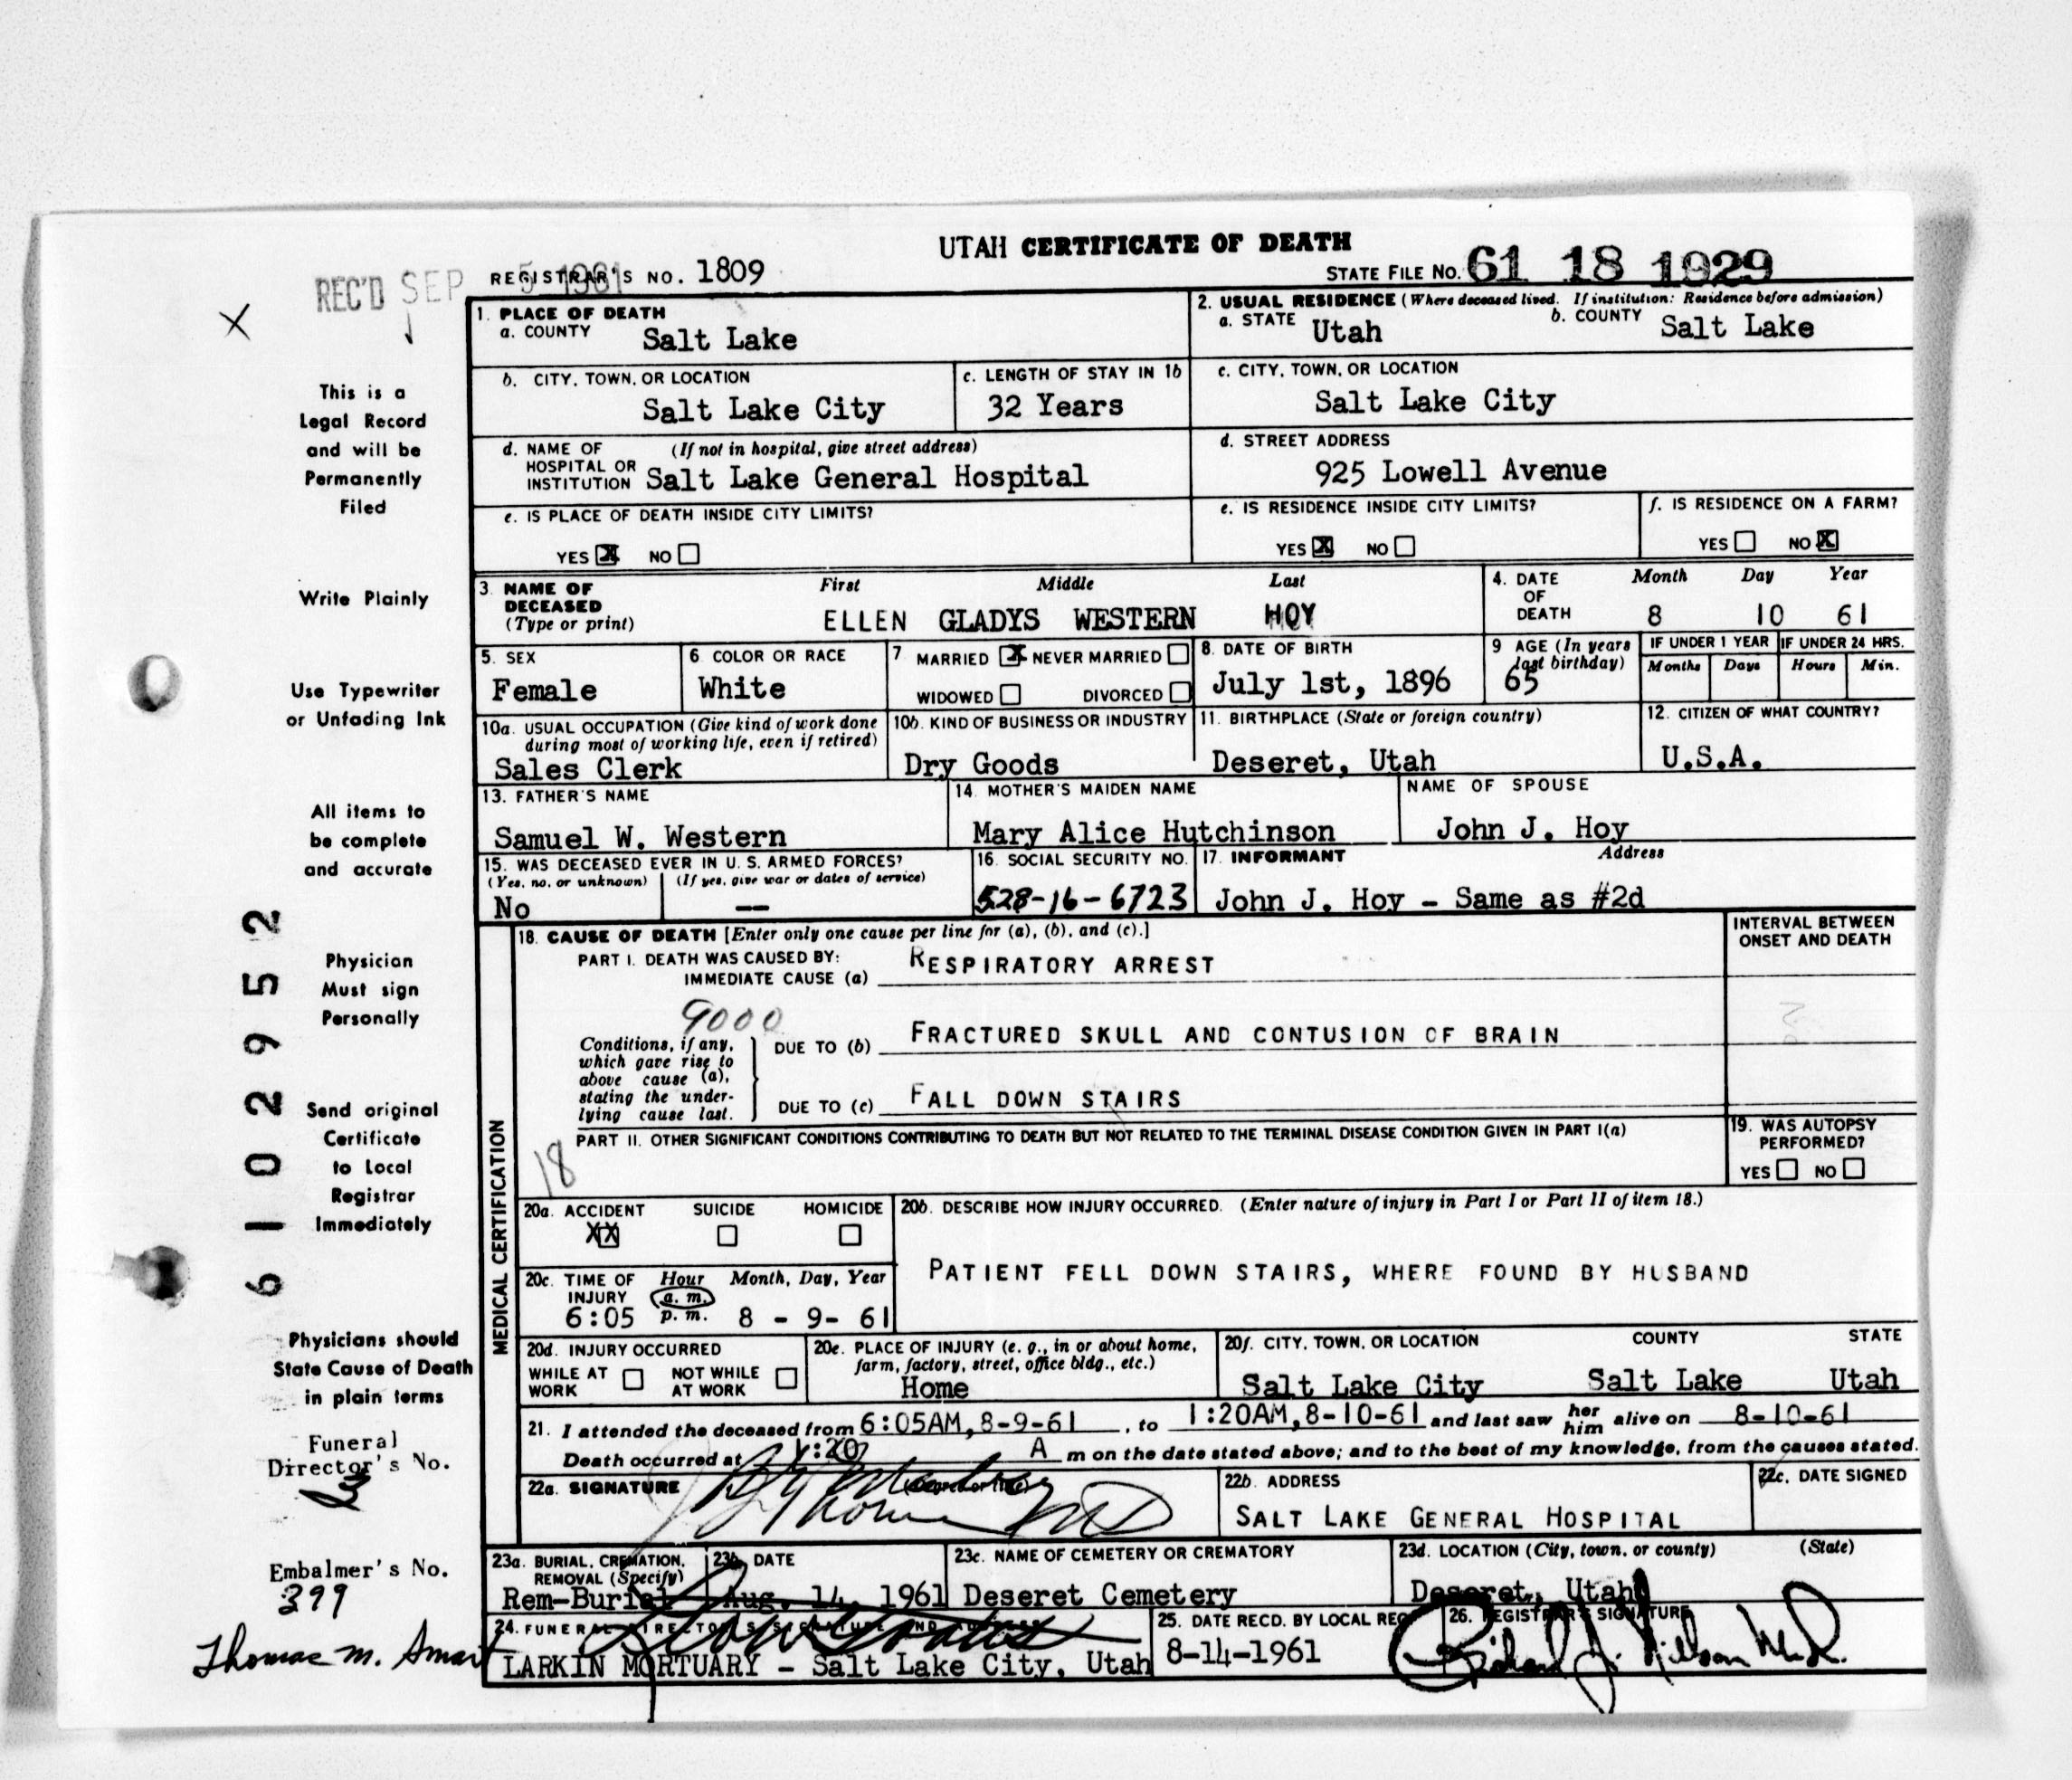 UTAH CERTIFICATE OF DEATH
REC'D SEP 5 1961
REGISTRAR'S NO. 1809
STATE FILE NO. 61 18 1929
X
1. PLACE OF DEATH
a. COUNTY Salt Lake
2. USUAL RESIDENCE (Where deceased lived. If institution: Residence before admission)
a. STATE Utah b. COUNTY Salt Lake
b. CITY, TOWN, OR LOCATION
Salt Lake City
c. LENGTH OF STAY IN 1b
32 Years
c. CITY, TOWN, OR LOCATION
Salt Lake City
d. NAME OF HOSPITAL OR INSTITUTION (If not in hospital, give street address)
Salt Lake General Hospital
d. STREET ADDRESS
925 Lowell Avenue
e. IS PLACE OF DEATH INSIDE CITY LIMITS?
YES X NO
e. IS RESIDENCE INSIDE CITY LIMITS?
YES X NO
f. IS RESIDENCE ON A FARM?
YES NO X
3. NAME OF DECEASED (Type or print)
First Middle Last
ELLEN GLADYS WESTERN HOY
4. DATE OF DEATH
Month Day Year
8 10 61
5. SEX
Female
6. COLOR OR RACE
White
7 MARRIED X NEVER MARRIED
WIDOWED DIVORCED
8. DATE OF BIRTH
July 1st, 1896
9 AGE (In years last birthday)
65
IF UNDER 1 YEAR
Months Days
IF UNDER 24 HRS.
Hours Min.
10a. USUAL OCCUPATION (Give kind of work done during most of working life, even if retired)
Sales Clerk
10b. KIND OF BUSINESS OR INDUSTRY
Dry Goods
11. BIRTHPLACE (State or foreign country)
Deseret, Utah
12. CITIZEN OF WHAT COUNTRY?
U.S.A.
13. FATHER'S NAME
Samuel W. Western
14. MOTHER'S MAIDEN NAME
Mary Alice Hutchinson
NAME OF SPOUSE
John J. Hoy
15. WAS DECEASED EVER IN U.S. ARMED FORCES?
(Yes, no, or unknown) (If yes, give war or dates of service)
No --
16. SOCIAL SECURITY NO.
528-16-6723
17. INFORMANT Address
John J. Hoy - Same as #2d
MEDICAL CERTIFICATION
18. CAUSE OF DEATH [Enter only one cause per line for (a), (b), and (c).]
INTERVAL BETWEEN ONSET AND DEATH
PART I. DEATH WAS CAUSED BY:
IMMEDIATE CAUSE (a) RESPIRATORY ARREST
9000
Conditions, if any, which gave rise to above cause (a), stating the underlying cause last.
DUE TO (b) FRACTURED SKULL AND CONTUSION OF BRAIN
DUE TO (c) FALL DOWN STAIRS
PART II. OTHER SIGNIFICANT CONDITIONS CONTRIBUTING TO DEATH BUT NOT RELATED TO THE TERMINAL DISEASE CONDITION GIVEN IN PART I(a)
18
19. WAS AUTOPSY PERFORMED?
YES NO
20a. ACCIDENT SUICIDE HOMICIDE
XX
20b. DESCRIBE HOW INJURY OCCURRED. (Enter nature of injury in Part I or Part II of item 18.)
PATIENT FELL DOWN STAIRS, WHERE FOUND BY HUSBAND
20c. TIME OF INJURY Hour Month, Day, Year
a. m.
6:05 p. m. 8 - 9- 61
20d. INJURY OCCURRED
WHILE AT WORK NOT WHILE AT WORK
20e. PLACE OF INJURY (e. g., in or about home, farm, factory, street, office bldg., etc.)
Home
20f. CITY, TOWN, OR LOCATION COUNTY STATE
Salt Lake City Salt Lake Utah
21. I attended the deceased from 6:05AM, 8-9-61, to 1:20AM, 8-10-61 and last saw her him alive on 8-10-61
Death occurred at 1:20 A m on the date stated above; and to the best of my knowledge, from the causes stated.
22a. SIGNATURE (Degree or title)
MD
22b. ADDRESS
SALT LAKE GENERAL HOSPITAL
22c. DATE SIGNED
23a. BURIAL, CREMATION, REMOVAL (Specify)
Rem-Burial
23b. DATE
Aug. 14, 1961
23c. NAME OF CEMETERY OR CREMATORY
Deseret Cemetery
23d. LOCATION (City, town, or county) (State)
Deseret, Utah
24. FUNERAL DIRECTOR'S SIGNATURE AND ADDRESS
LARKIN MORTUARY - Salt Lake City, Utah
25. DATE RECD. BY LOCAL REG.
8-14-1961
26. REGISTRAR'S SIGNATURE
This is a
Legal Record
and will be
Permanently
Filed
Write Plainly
Use Typewriter
or Unfading Ink
All items to
be complete
and accurate
Physician
Must sign
Personally
Send original
Certificate
to Local
Registrar
Immediately
Physicians should
State Cause of Death
in plain terms
Funeral
Director's No.
3
Embalmer's No.
399
Thomas M. Smart
6102952